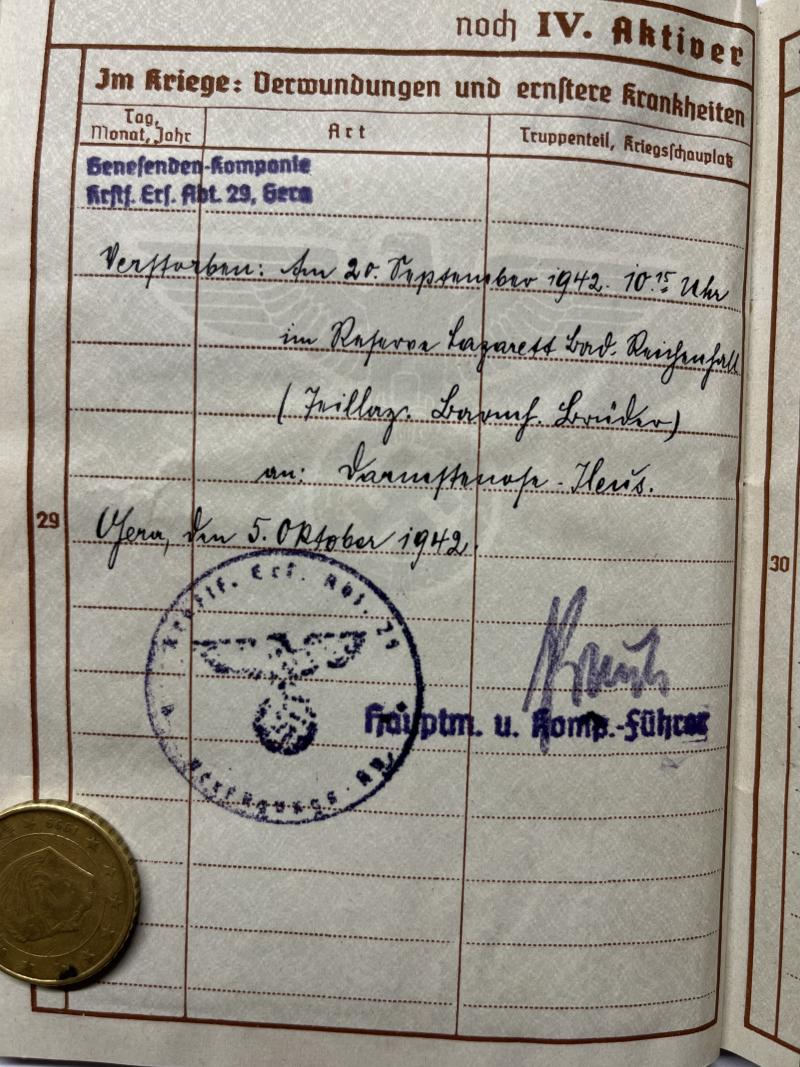 noch IV. Aktiver
Im Kriege: Verwundungen und ernstere Krankheiten
Tag, Monat, Jahr
Art
Truppenteil, Kriegsschauplatz
Genesenden-Kompanie
Krftf. Ers. Abt. 29, Gera
Verstorben: Am 20. September 1942. 10.15 Uhr
im Reserve Lazarett Bad. Reichenhall
(Teillaz. Barmh. Brüder)
an: Darmstenose - Ileus.
29
Gera, den 5. Oktober 1942.
30
Kraftf. Ers. Abt. 29
Hauptm. u. Komp.-Führer
1999